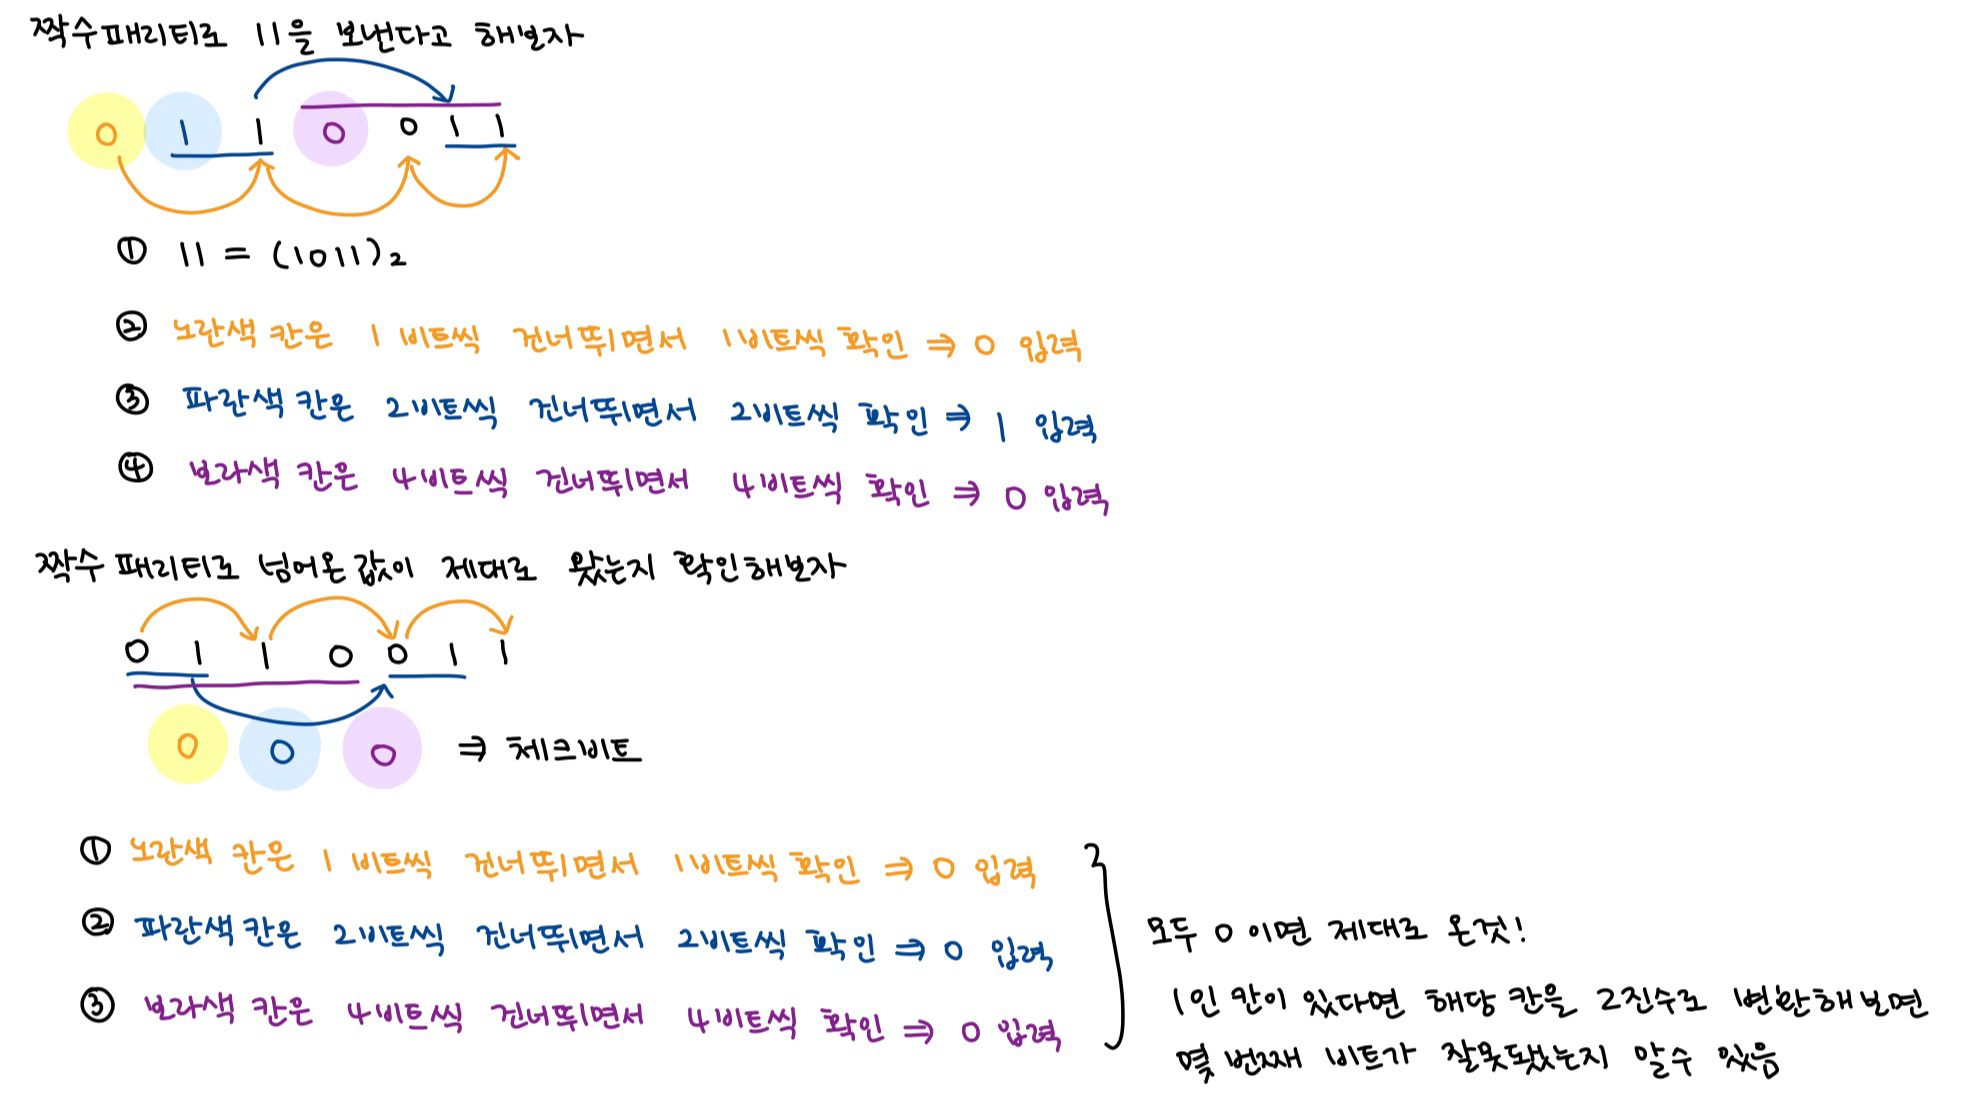 짝수패리티로 11을 보낸다고 해보자
0 1 1 0 0 1 1
① 11 = (1011)₂
② 노란색 칸은 1 비트씩 건너뛰면서 1비트씩 확인 ⇒ 0 입력
③ 파란색 칸은 2비트씩 건너뛰면서 2비트씩 확인 ⇒ 1 입력
④ 보라색 칸은 4비트씩 건너뛰면서 4비트씩 확인 ⇒ 0 입력
짝수 패리티로 넘어온 값이 제대로 왔는지 확인해보자
0 1 1 0 0 1 1
0 0 0 ⇒ 체크비트
① 노란색 칸은 1 비트씩 건너뛰면서 1비트씩 확인 ⇒ 0 입력
② 파란색 칸은 2비트씩 건너뛰면서 2비트씩 확인 ⇒ 0 입력
③ 보라색 칸은 4비트씩 건너뛰면서 4비트씩 확인 ⇒ 0 입력
모두 0 이면 제대로 온것!
1인 칸이 있다면 해당 칸을 2진수로 변환해보면
몇 번째 비트가 잘못됐는지 알수 있음